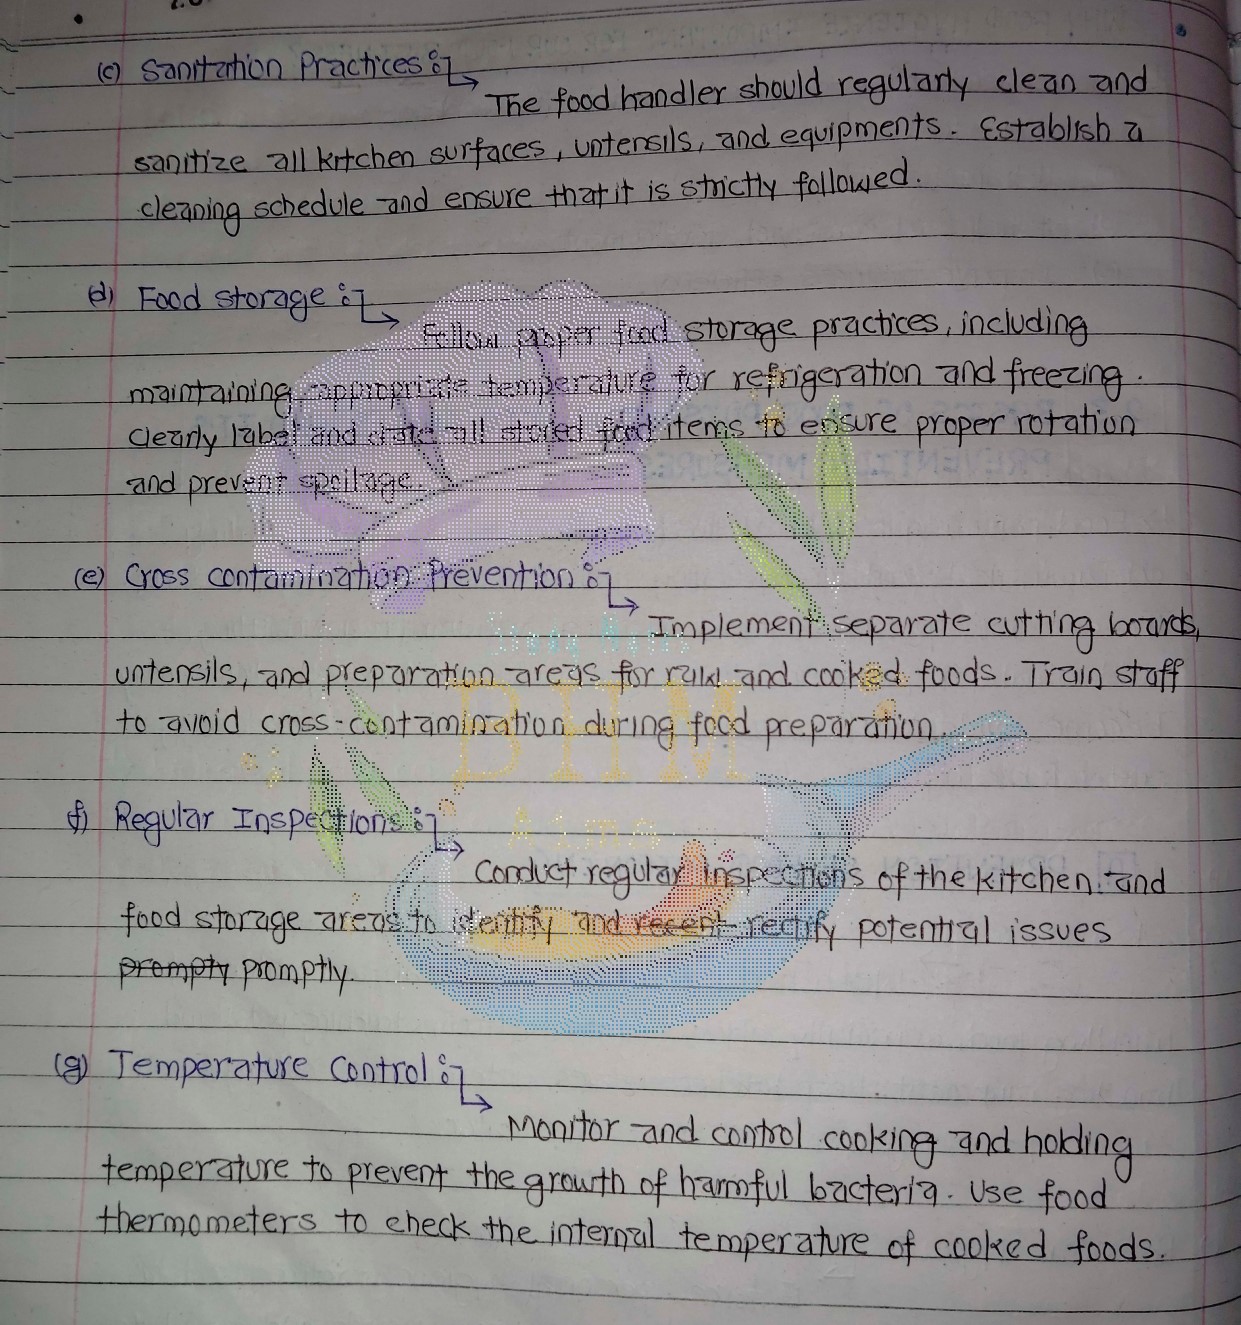 (c) Sanitation Practices :
The food handler should regularly clean and
sanitize all kitchen surfaces, untensils, and equipments. Establish a
cleaning schedule and ensure that it is strictly followed.
(d) Food storage :
Follow proper food storage practices, including
maintaining appropriate temperature for refrigeration and freezing.
Clearly label and date all stored food items to ensure proper rotation
and prevent spoilage.
(e) Cross contamination Prevention :
Implement separate cutting boards,
untensils, and preparation areas for raw and cooked foods. Train staff
to avoid cross-contamination during food preparation.
BHM
Aims
(f) Regular Inspections :
Conduct regular inspections of the kitchen and
food storage areas to identify and recent rectify potential issues
prompty promptly.
(g) Temperature Control :
Monitor and control cooking and holding
temperature to prevent the growth of harmful bacteria. Use food
thermometers to check the internal temperature of cooked foods.